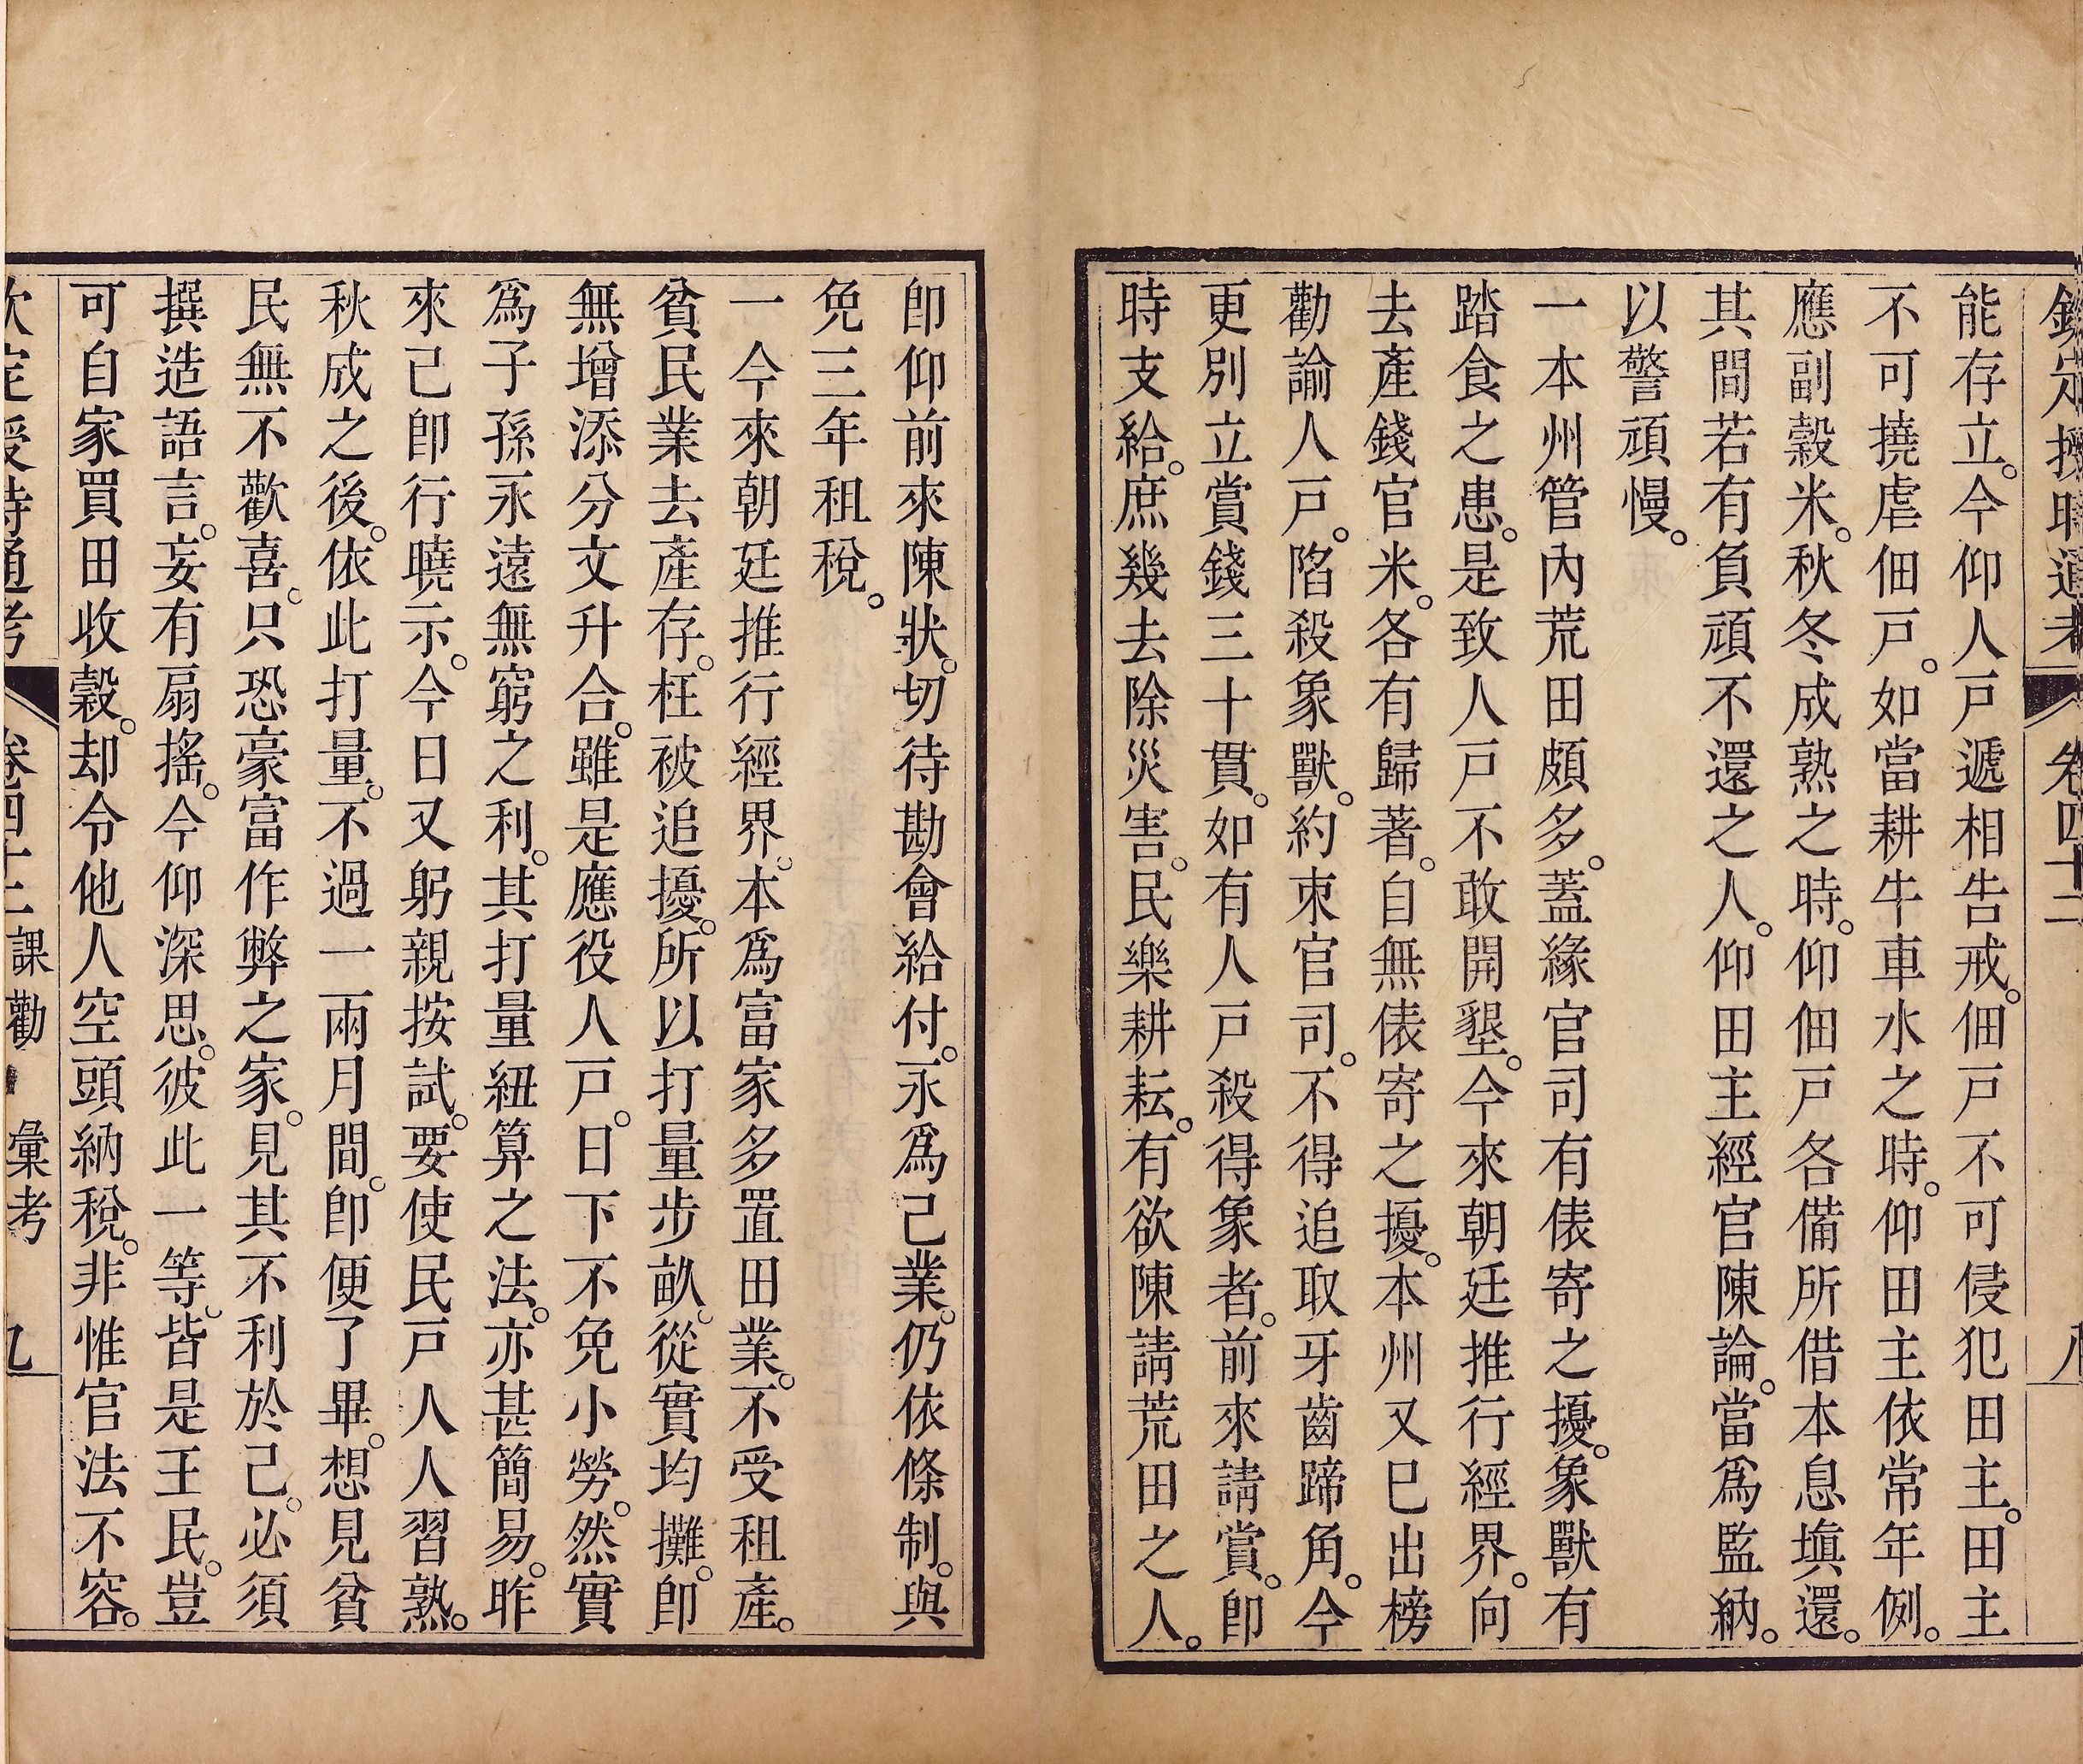 欽定授時通考 卷四十二 八
能存立。今仰人戸遞相告戒。佃戸不可侵犯田主。田主
不可撓虐佃戸。如當耕牛車水之時。仰田主依常年例。
應副穀米。秋冬成熟之時。仰佃戸各備所借本息塡還。
其間若有負頑不還之人。仰田主經官陳論。當爲監納。
以警頑慢。
一本州管內荒田頗多。蓋緣官司有俵寄之擾。象獸有
踏食之患。是致人戸不敢開墾。今來朝廷推行經界。向
去產錢官米。各有歸著。自無俵寄之擾。本州又巳出榜
勸諭人戸。陷殺象獸。約束官司。不得追取牙齒蹄角。今
更別立賞錢三十貫。如有人戸殺得象者。前來請賞。卽
時支給。庶幾去除災害。民樂耕耘。有欲陳請荒田之人。
卽仰前來陳狀。切待勘會給付。永爲己業。仍依條制。與
免三年租稅。
一今來朝廷推行經界。本爲富家多置田業。不受租產。
貧民業去產存。枉被追擾。所以打量步畝。從實均攤。卽
無增添分文升合。雖是應役人戸。日下不免小勞。然實
爲子孫永遠無窮之利。其打量紐算之法。亦甚簡易。昨
來己卽行曉示。今日又躬親按試。要使民戸人人習熟。
秋成之後。依此打量。不過一兩月間。卽便了畢。想見貧
民無不歡喜。只恐豪富作弊之家。見其不利於己。必須
撰造語言。妄有扇搖。今仰深思。彼此一等。皆是王民。豈
可自家買田收穀。却令他人空頭納稅。非惟官法不容。
欽定授時通考 卷四十二 課勸 彙考 九